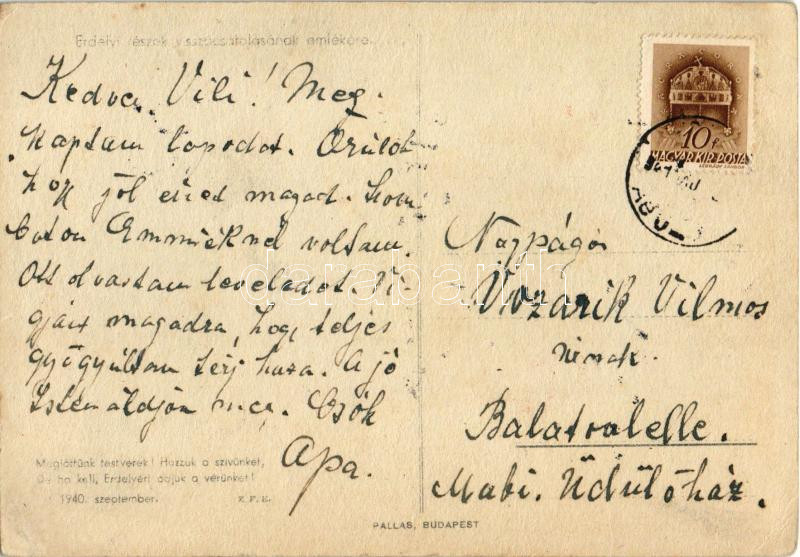 Erdélyi részek visszacsatolásának emlékére.
Kedves Vili! Meg-
kaptam lapodat. Örülök
hogy jól érzed magad. Szom-
baton Emmiéknél voltam.
Ott olvastam leveledet. Vi-
gyázz magadra, hogy teljes
gyógyultan térj haza. A jó
Isten áldjon meg. Csók
Apa.
Megjöttünk testvérek! Hozzuk a szívünket,
De ha kell, Erdélyért adjuk a vérünket!
1940. szeptember. Z. F. E.
PALLAS, BUDAPEST
10 f
MAGYAR KIR. POSTA
Nagyságos
Vozarik Vilmos
úrnak.
Balatonlelle.
Mabi. Üdülőház.
darabanth